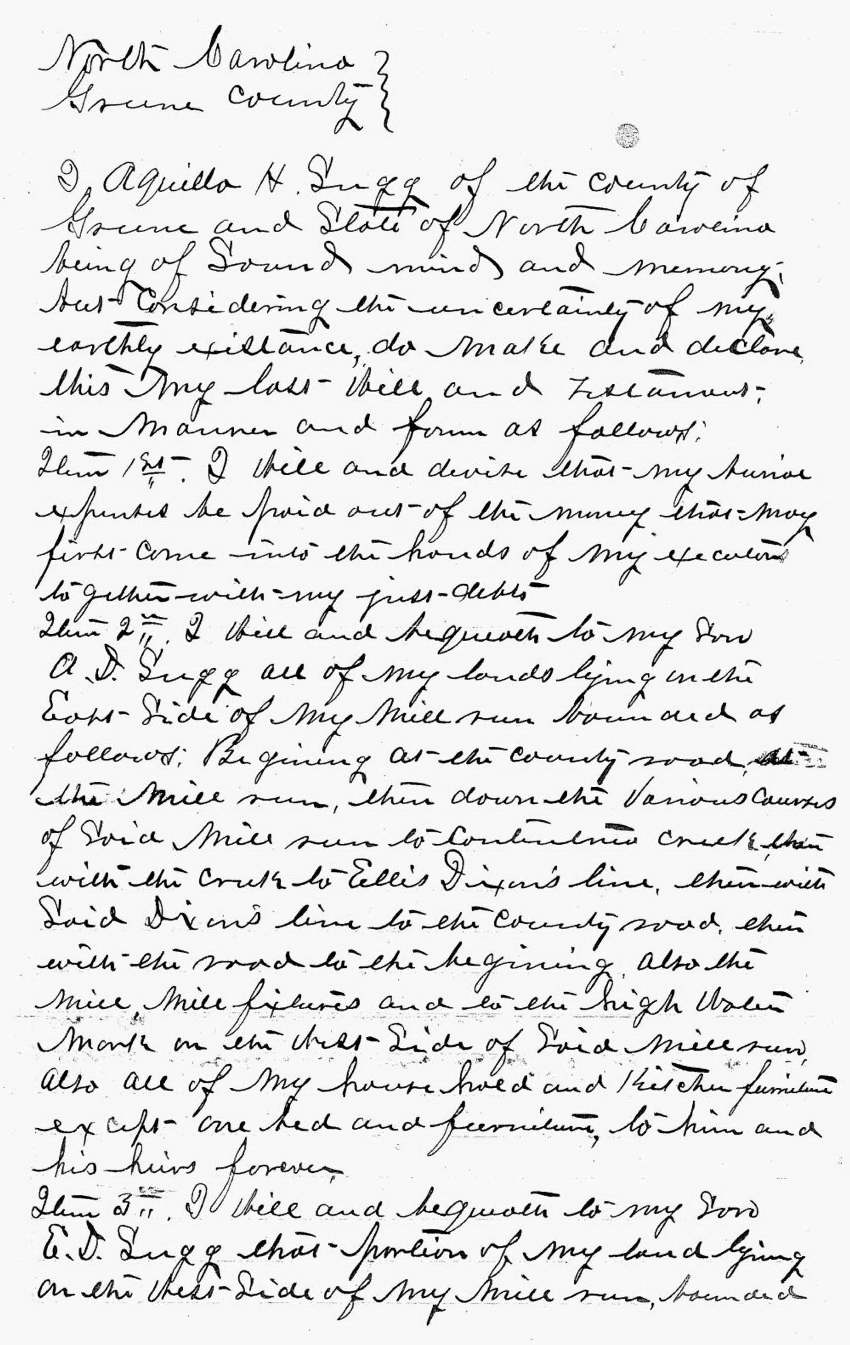 North Carolina }
Greene County }
I, Aquilla H. Sugg of the county of
Greene and State of North Carolina
being of Sound mind and memory,
but Considering the uncertainty of my
earthly existance, do make and declare
this my last Will and Testament,
in Manner and form as follows;
Item 1st. I Will and devise that my burial
expenses be paid out of the money that may
first come into the hands of my executors
together with my just debts
Item 2nd. I Will and bequeath to my Son
A. D. Sugg all of my lands lying on the
East Side of My Mill run bounded as
follows; Begining at the county road,
the Mill run, then down the Various Courses
of Said Mill run to Contentnea creek, then
with the creek to Ellis Dixon's line, then with
Said Dixon's line to the county road, then
with the road to the begining, also the
Mill, Mill fixtures and to the high Water
Mark on the West Side of Said Mill run,
also all of My house hold and Kitchen furniture
except one bed and furniture, to him and
his heirs forever,
Item 3rd. I Will and bequeath to my Son
E. D. Sugg that portion of my land lying
on the West Side of My Mill run, bounded